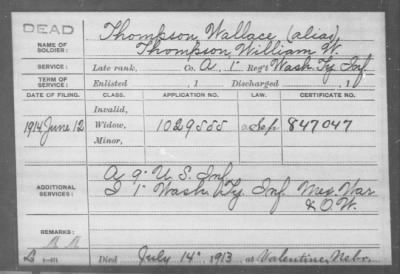 DEAD
NAME OF SOLDIER:
Thompson Wallace (alias)
Thompson, William W.
SERVICE: Late rank, Co. A, 1" Reg't Wash. Ty. Inf
TERM OF SERVICE: Enlisted , 1 Discharged , 1
DATE OF FILING. CLASS. APPLICATION NO. LAW. CERTIFICATE NO.
Invalid,
1914 June 12 Widow, 1029555 847047
Minor,
ADDITIONAL SERVICES:
A 9" U.S. Inf.
I 1" Wash. Ty. Inf. Mex. War
& O.W.
REMARKS:
Died July 14", 1913, at Valentine, Nebr.